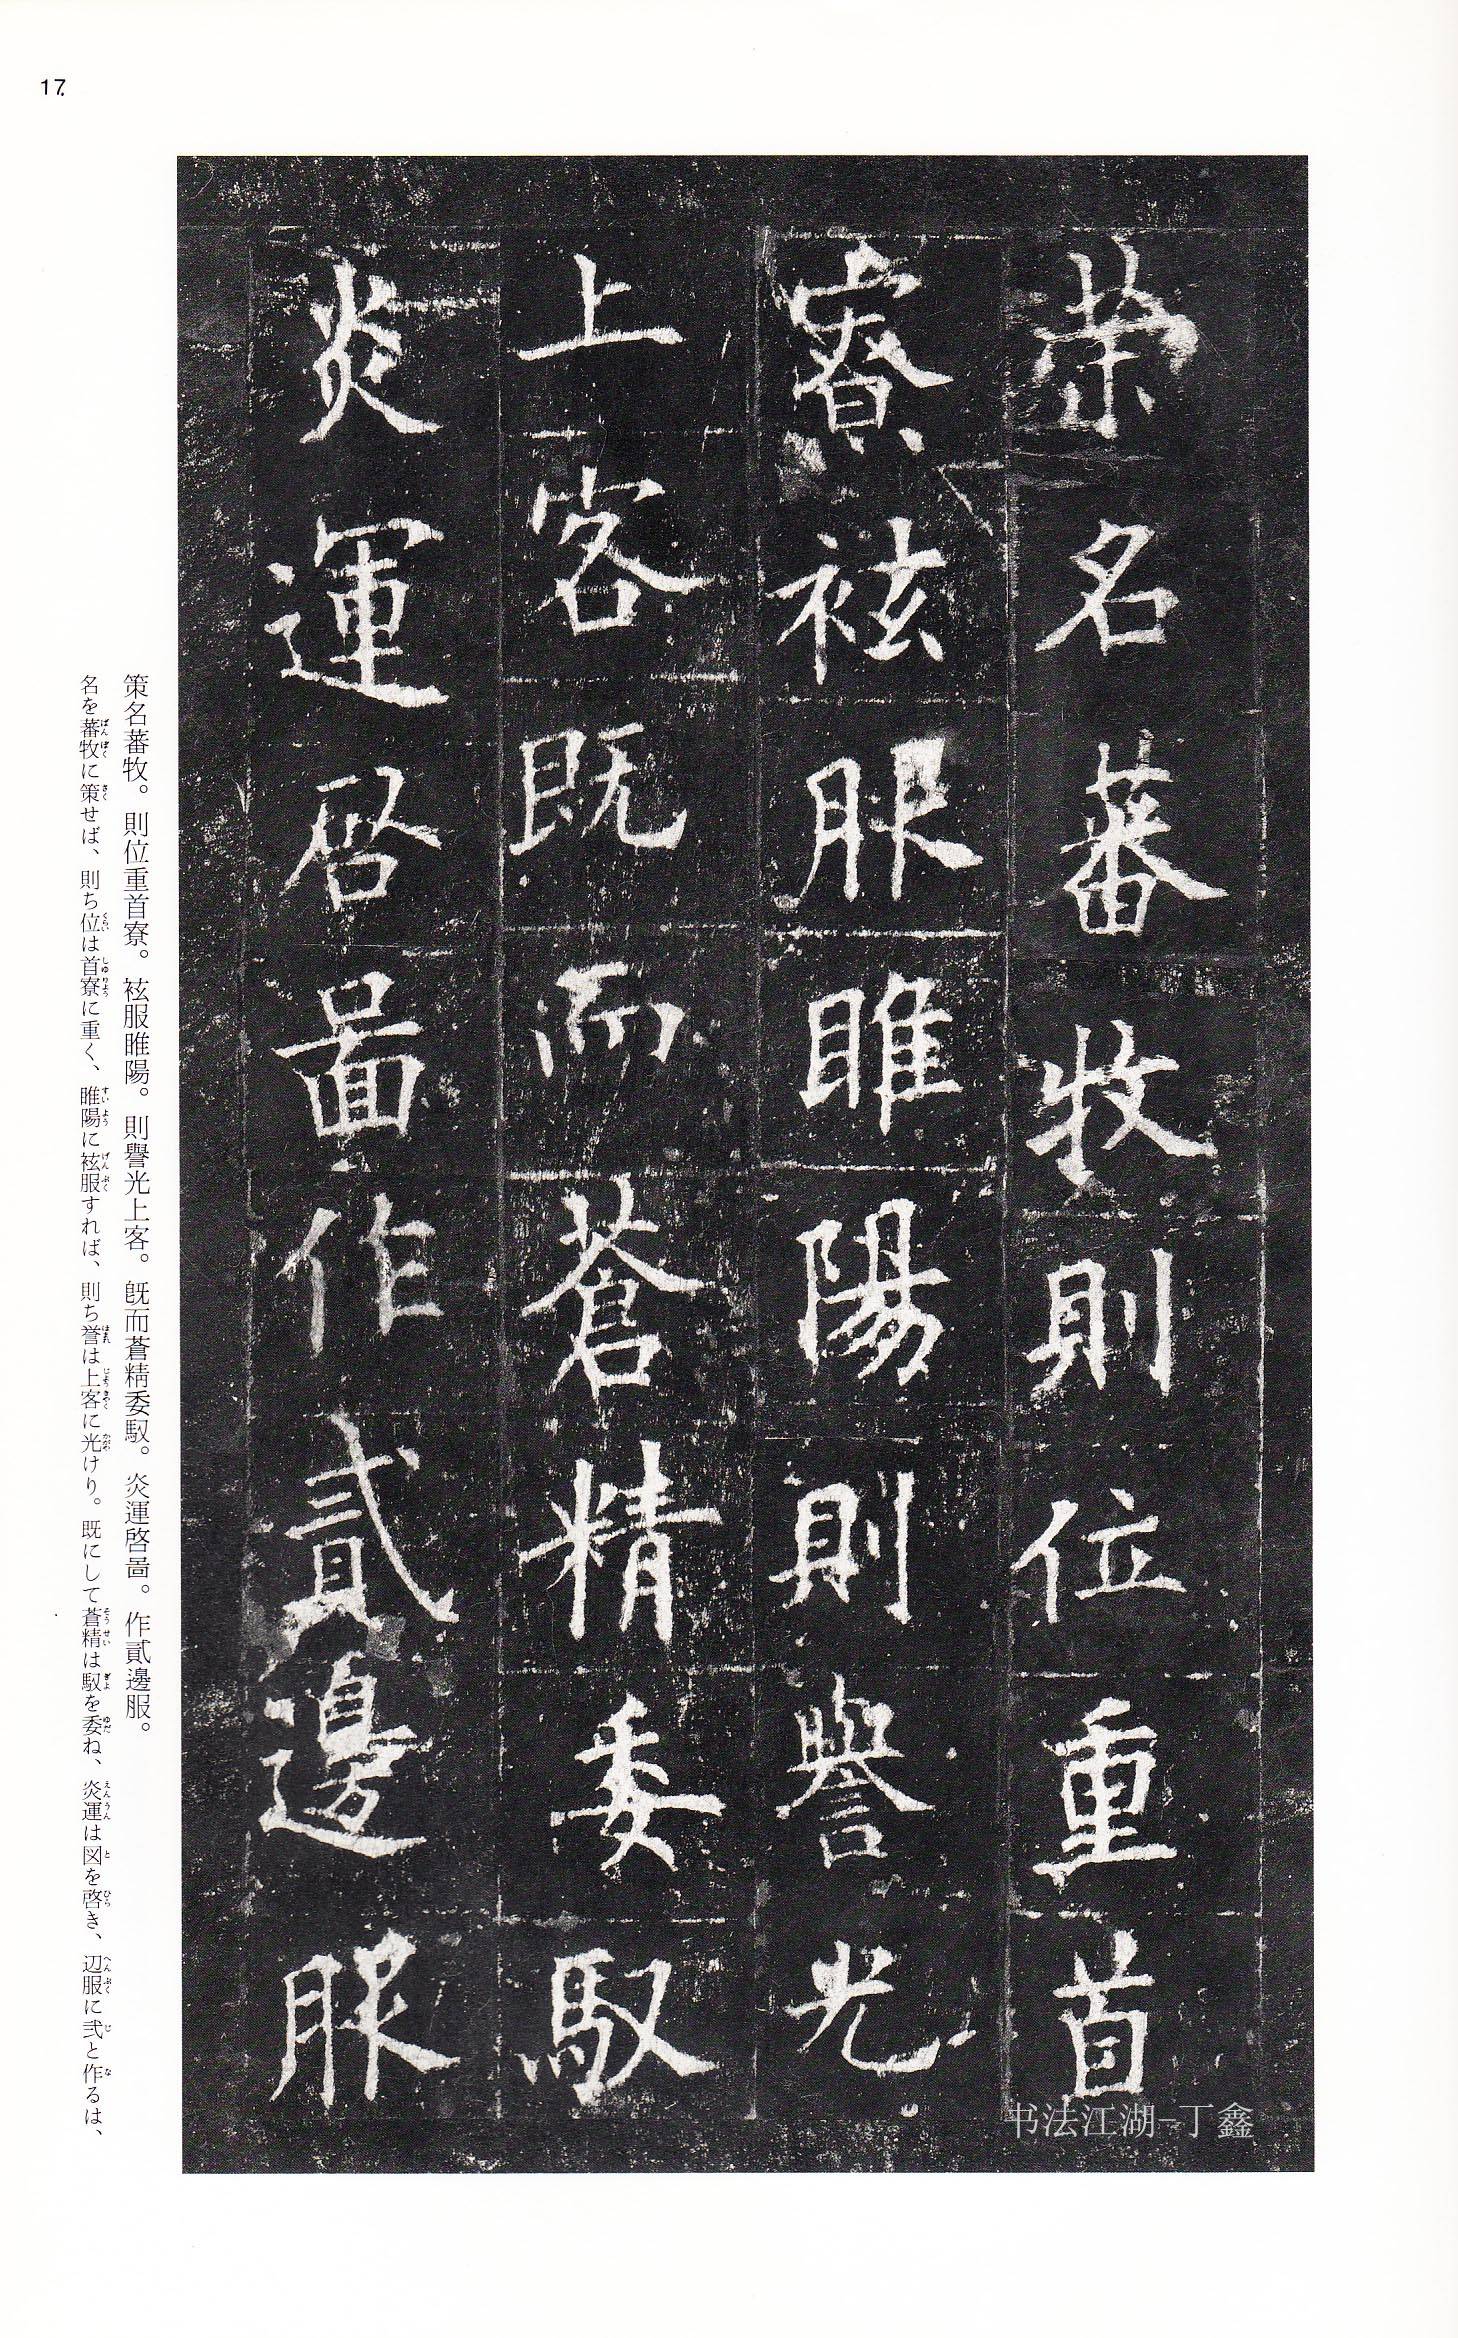 17
茦名蕃牧則位重首
寮袨服睢陽則譽光
上客既而蒼精委馭
炎運啓啚作貳邊服
策名蕃牧。則位重首寮。袨服睢陽。則譽光上客。既而蒼精委馭。炎運啓啚。作貳邊服。
名を蕃牧に策せば、則ち位は首寮に重く、睢陽に袨服すれば、則ち誉は上客に光けり。既にして蒼精は馭を委ね、炎運は図を啓き、辺服に弐と作るは、
书法江湖-丁鑫